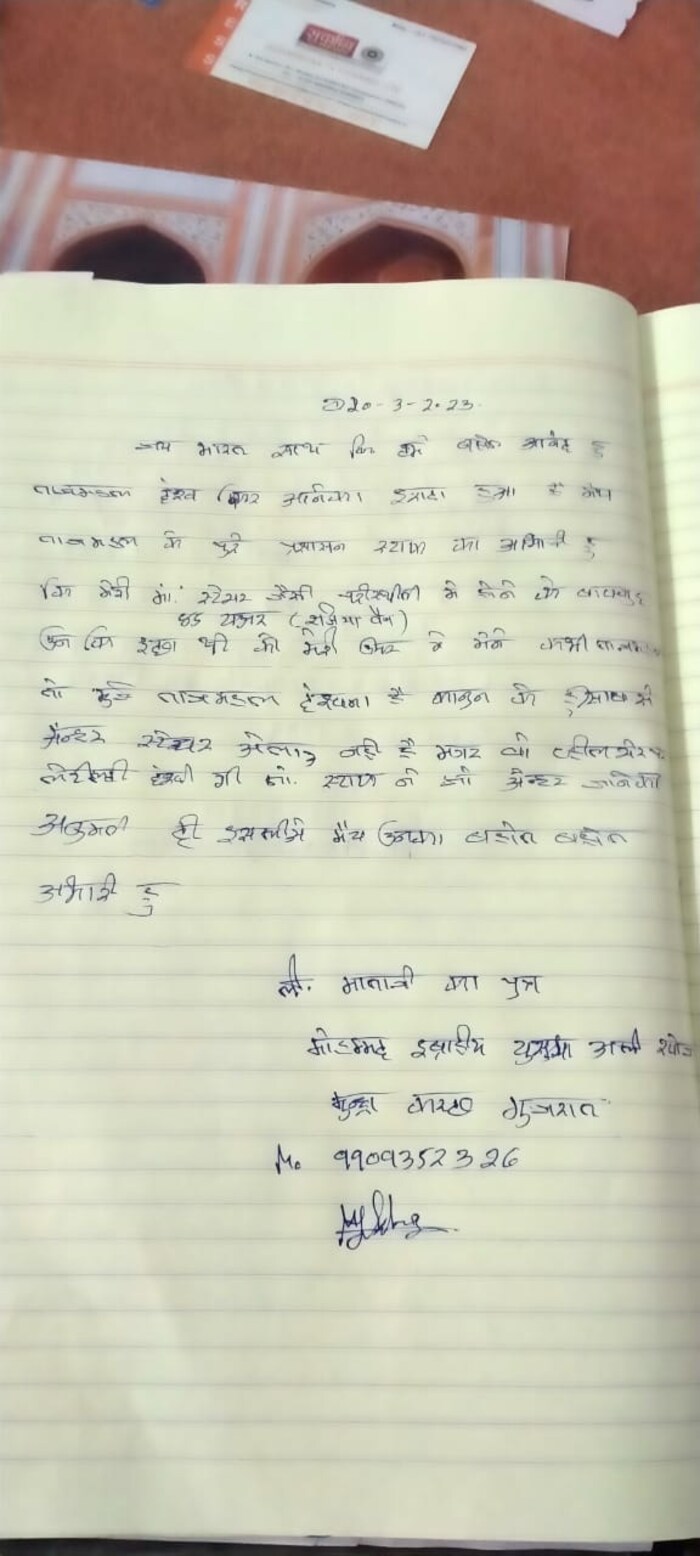 सकुन
20-3-2023
जय भारत साथ कि हमें बहोत आनंद हु
ताजमहल देखने फिर आनेका इरादा हुआ है मैय
ताजमहल के पुरे प्रशासन स्टाफ का आभारी हु
कि मेरी माँ. स्टेचर जैसी परीस्थीती मे होने के बावजुद
85 वर्ष (रझिया बेन)
उन कि इच्छा थी की मेरी उमर मे मैंने कभी ताजमहल
तो मुझे ताजमहल देखना है कानुन के हिसाब से
अन्दर स्टेचर अेलाव नही है मगर वो व्हीलचेर पे
देखी गी तो. स्टाफ ने जो अन्दर जानेकी
अनुमती दी इसलीये मैय उनका बहोत बहोत
आभारी हु
ली. माताजी का पुत्र
मोहम्मद इब्राहीम युसुफ अली खोजा
मुन्द्रा कच्छ गुजरात
Mo 9909352326